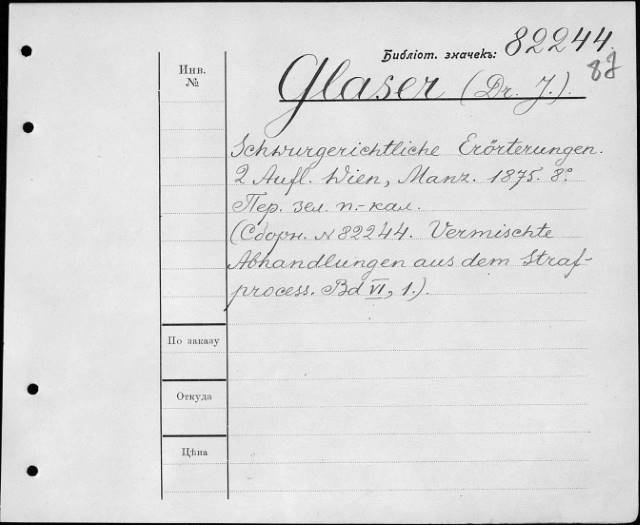 Библіот. значекъ: 82244.
Инв.
№
Glaser (Dr. J.).
Schwurgerichtliche Erörterungen.
2 Aufl. Wien, Manz. 1875. 8º
Пер. зел. п.-кал.
(Сборн. № 82244. Vermischte
Abhandlungen aus dem Straf-
process. Bd VI, 1.).
По заказу
Откуда
Цѣна